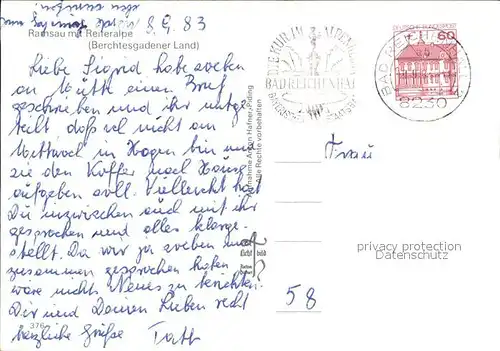 8.9.83
Ramsau mit Reiteralpe
(Berchtesgadener Land)
Liebe Sigrid habe soeben
an Mutti einen Brief
geschrieben und ihr mitge
teilt, daß ich nicht am
Mittwoch in Hagen bin und
sie den Koffer nach Haus
aufgeben soll. Vielleicht hast
Du inzwischen auch mit ihr
gesprochen und alles klarge-
stellt. Da wir ja soeben
zusammen gesprochen haben
wäre nichts Neues zu berichten.
Dir und Deinen Lieben recht
herzliche Grüße
376
Aufnahme Anton Hafner, Piding
Alle Rechte vorbehalten
Licht bild
DIE KUR IN
BAD REICHENHALL
BAD REICHENHALL
8230
DEUTSCHE BUNDESPOST
60
Frau
privacy protection
Datenschutz
58